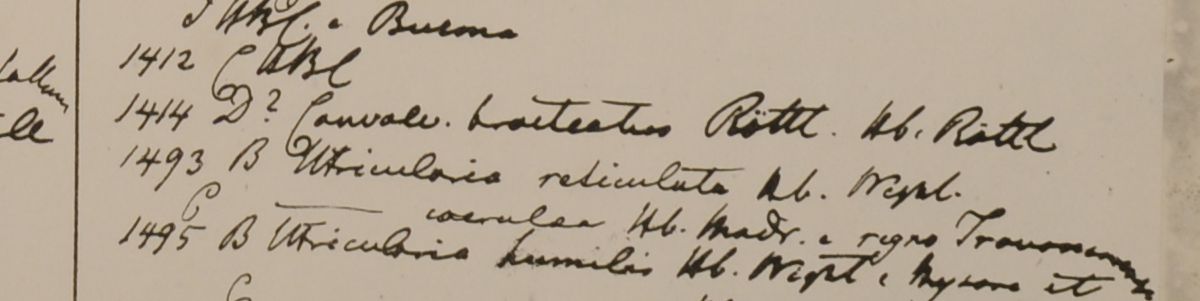 HBC. e Burma
1412 C HBC
1414 D? Convolv. bracteatus Rottl. Hb. Rottl
1493 B Utricularia reticulata Hb. Wight.
C — coerulea Hb. Madr. e regno
1495 B Utricularia humilis Hb. Wight e Mysore et